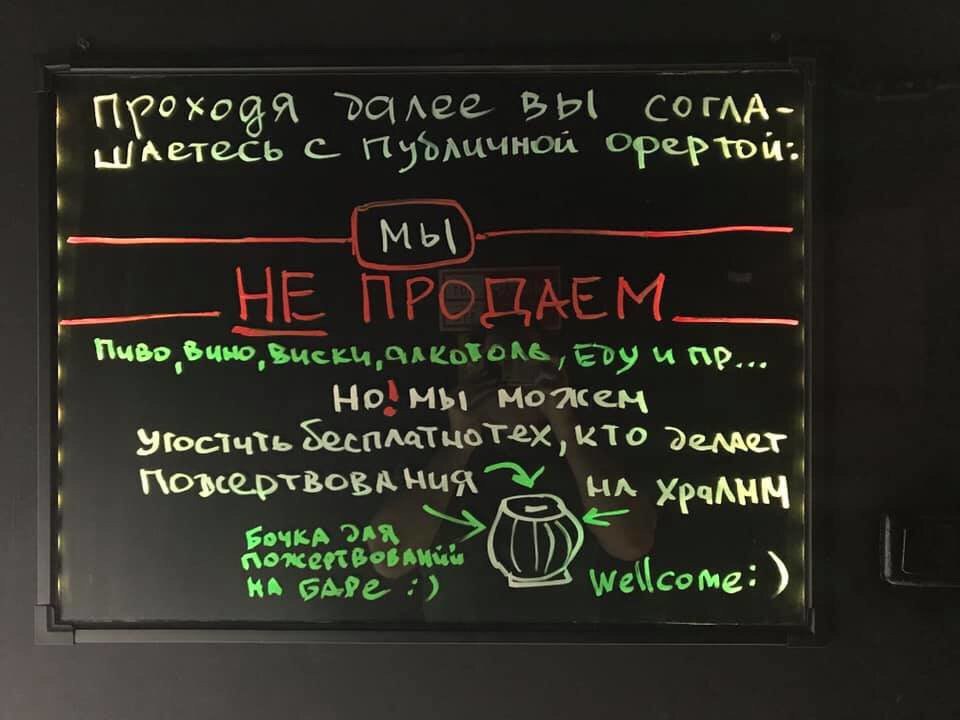 Проходя далее вы согла-
шаетесь с публичной офертой:
мы
НЕ ПРОДАЕМ
Пиво, вино, виски, алкоголь, еду и пр...
Но! мы можем
угостить бесплатно тех, кто делает
пожертвования на храЛНМ
Бочка для
пожертвований
на баре :)
wellcome:)